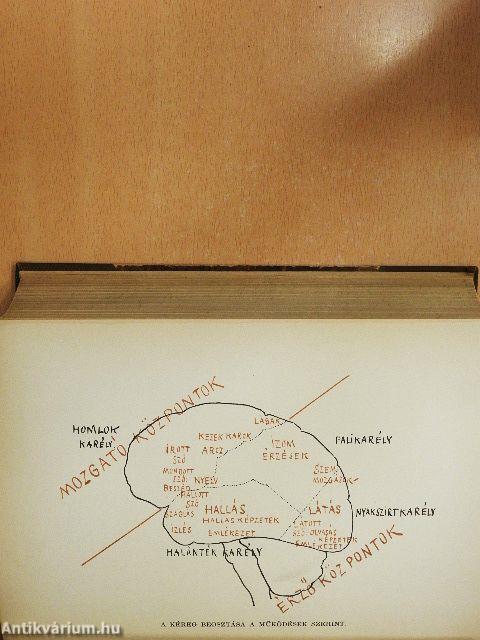 MOZGATÓ KÖZPONTOK
HOMLOK
KARÉLY
LÁBAK
KEZEK KAROK
ARCZ
IZOM
ÉRZÉSEK
FALIKARÉLY
ÍROTT
SZÓ
MONDOTT
SZÓ
BESZÉD
NYELV
SZEM
MOZGÁSOK
HALLOTT
SZÓ
SZAGLÁS
ÍZLÉS
HALLÁS
HALLÁS KÉPZETEK
EMLÉKEZET
LÁTÁS
LÁTOTT
SZÓ OLVASÁS
KÉPZETEK
EMLÉKEZET
NYAKSZIRTKARÉLY
HALÁNTÉK KARÉLY
ÉRZŐ KÖZPONTOK
A KÉREG BEOSZTÁSA A MŰKÖDÉSEK SZERINT.
Antikvárium.hu